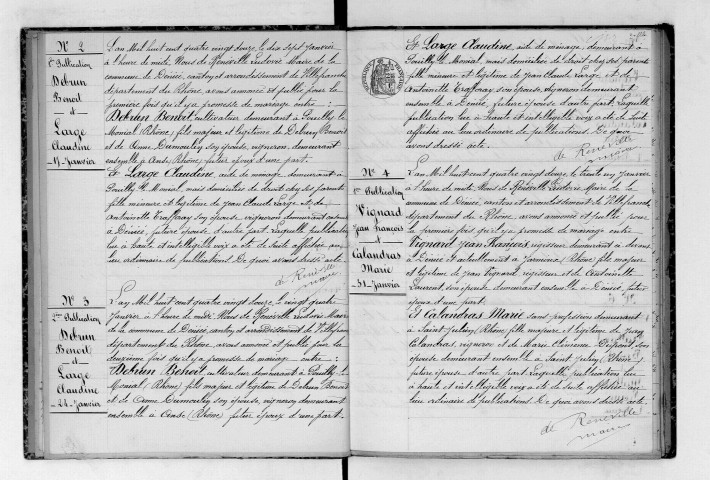 N° 2
1re Publication
Debrun
Benoit
et
Large
Claudine
17 Janvier
L'an Mil huit cent quatre vingt douze, le dix sept Janvier
à l'heure de midi, Nous de Renéville Ludovic Maire de la
commune de Denicé, canton et arrondissement de Villefranche
département du Rhône, avons annoncé et publié pour la
première fois qu'il y a promesse de mariage entre :
Debrun Benoit, cultivateur demeurant à Pouilly le
Monial (Rhône) fils majeur et légitime de Debrun Benoit
et de Anne Dumoulin son épouse, vigneron, demeurant
ensemble à Anse (Rhône) futur époux d'une part.
Et Large Claudine, aide de ménage, demeurant à
Pouilly le Monial, mais domiciliée de droit chez ses parents
fille mineure et légitime de Jean Claude Large et de
Antoinette Traffray son épouse, vigneron demeurant ensemble
à Denicé, future épouse d'autre part. Laquelle publication
lue à haute et intelligible voix a été de suite affichée au
lieu ordinaire de publications. De quoi avons dressé acte
de Renéville
maire
N° 3
2me Publication
Debrun
Benoit
et
Large
Claudine
24 Janvier
L'an Mil huit cent quatre vingt douze, le vingt quatre
Janvier à l'heure de midi, Nous de Renéville Ludovic Maire
de la commune de Denicé, canton et arrondissement de Villefranche
département du Rhône, avons annoncé et publié pour la
deuxième fois qu'il y a promesse de mariage entre :
Debrun Benoit cultivateur demeurant à Pouilly le
Monial (Rhône) fils majeur et légitime de Debrun Benoit
et de Anne Dumoulin son épouse, vigneron demeurant
ensemble à Anse (Rhône) futur époux d'une part.
Et Large Claudine, aide de ménage, demeurant à
Pouilly le Monial, mais domiciliée de droit chez ses parents
fille mineure et légitime de Jean Claude Large et de
Antoinette Traffray son épouse, vigneron demeurant
ensemble à Denicé, future épouse d'autre part. Laquelle
publication lue à haute et intelligible voix a été de suite
affichée au lieu ordinaire de publications. De quoi
avons dressé acte.
de Renéville
maire
N° 4
1re Publication
Vignard
Jean François
et
Calandras
Marie
31 Janvier
L'an Mil huit cent quatre vingt douze, le trente un Janvier
à l'heure de midi Nous de Renéville Ludovic Maire de la
commune de Denicé, canton et arrondissement de Villefranche
département du Rhône, avons annoncé et publié pour
la première fois qu'il y a promesse de mariage entre
Vignard Jean François, régisseur demeurant
à Denicé et actuellement à Jarnioux, Rhône, fils majeur
et légitime de Jean Vignard, régisseur et de Antoinette
Laurent, son épouse demeurant ensemble à Denicé, futur
époux d'une part.
Et Calandras Marie sans profession demeurant
à Saint Julien, Rhône, fille majeure et légitime de
Calandras, vigneron et de Marie Clémence Dupont, son
épouse demeurant ensemble à Saint Julien, Rhône
future épouse d'autre part. Laquelle publication lue
à haute et intelligible voix a été de suite affichée au
lieu ordinaire de publications. De quoi avons dressé acte.
de Renéville
maire